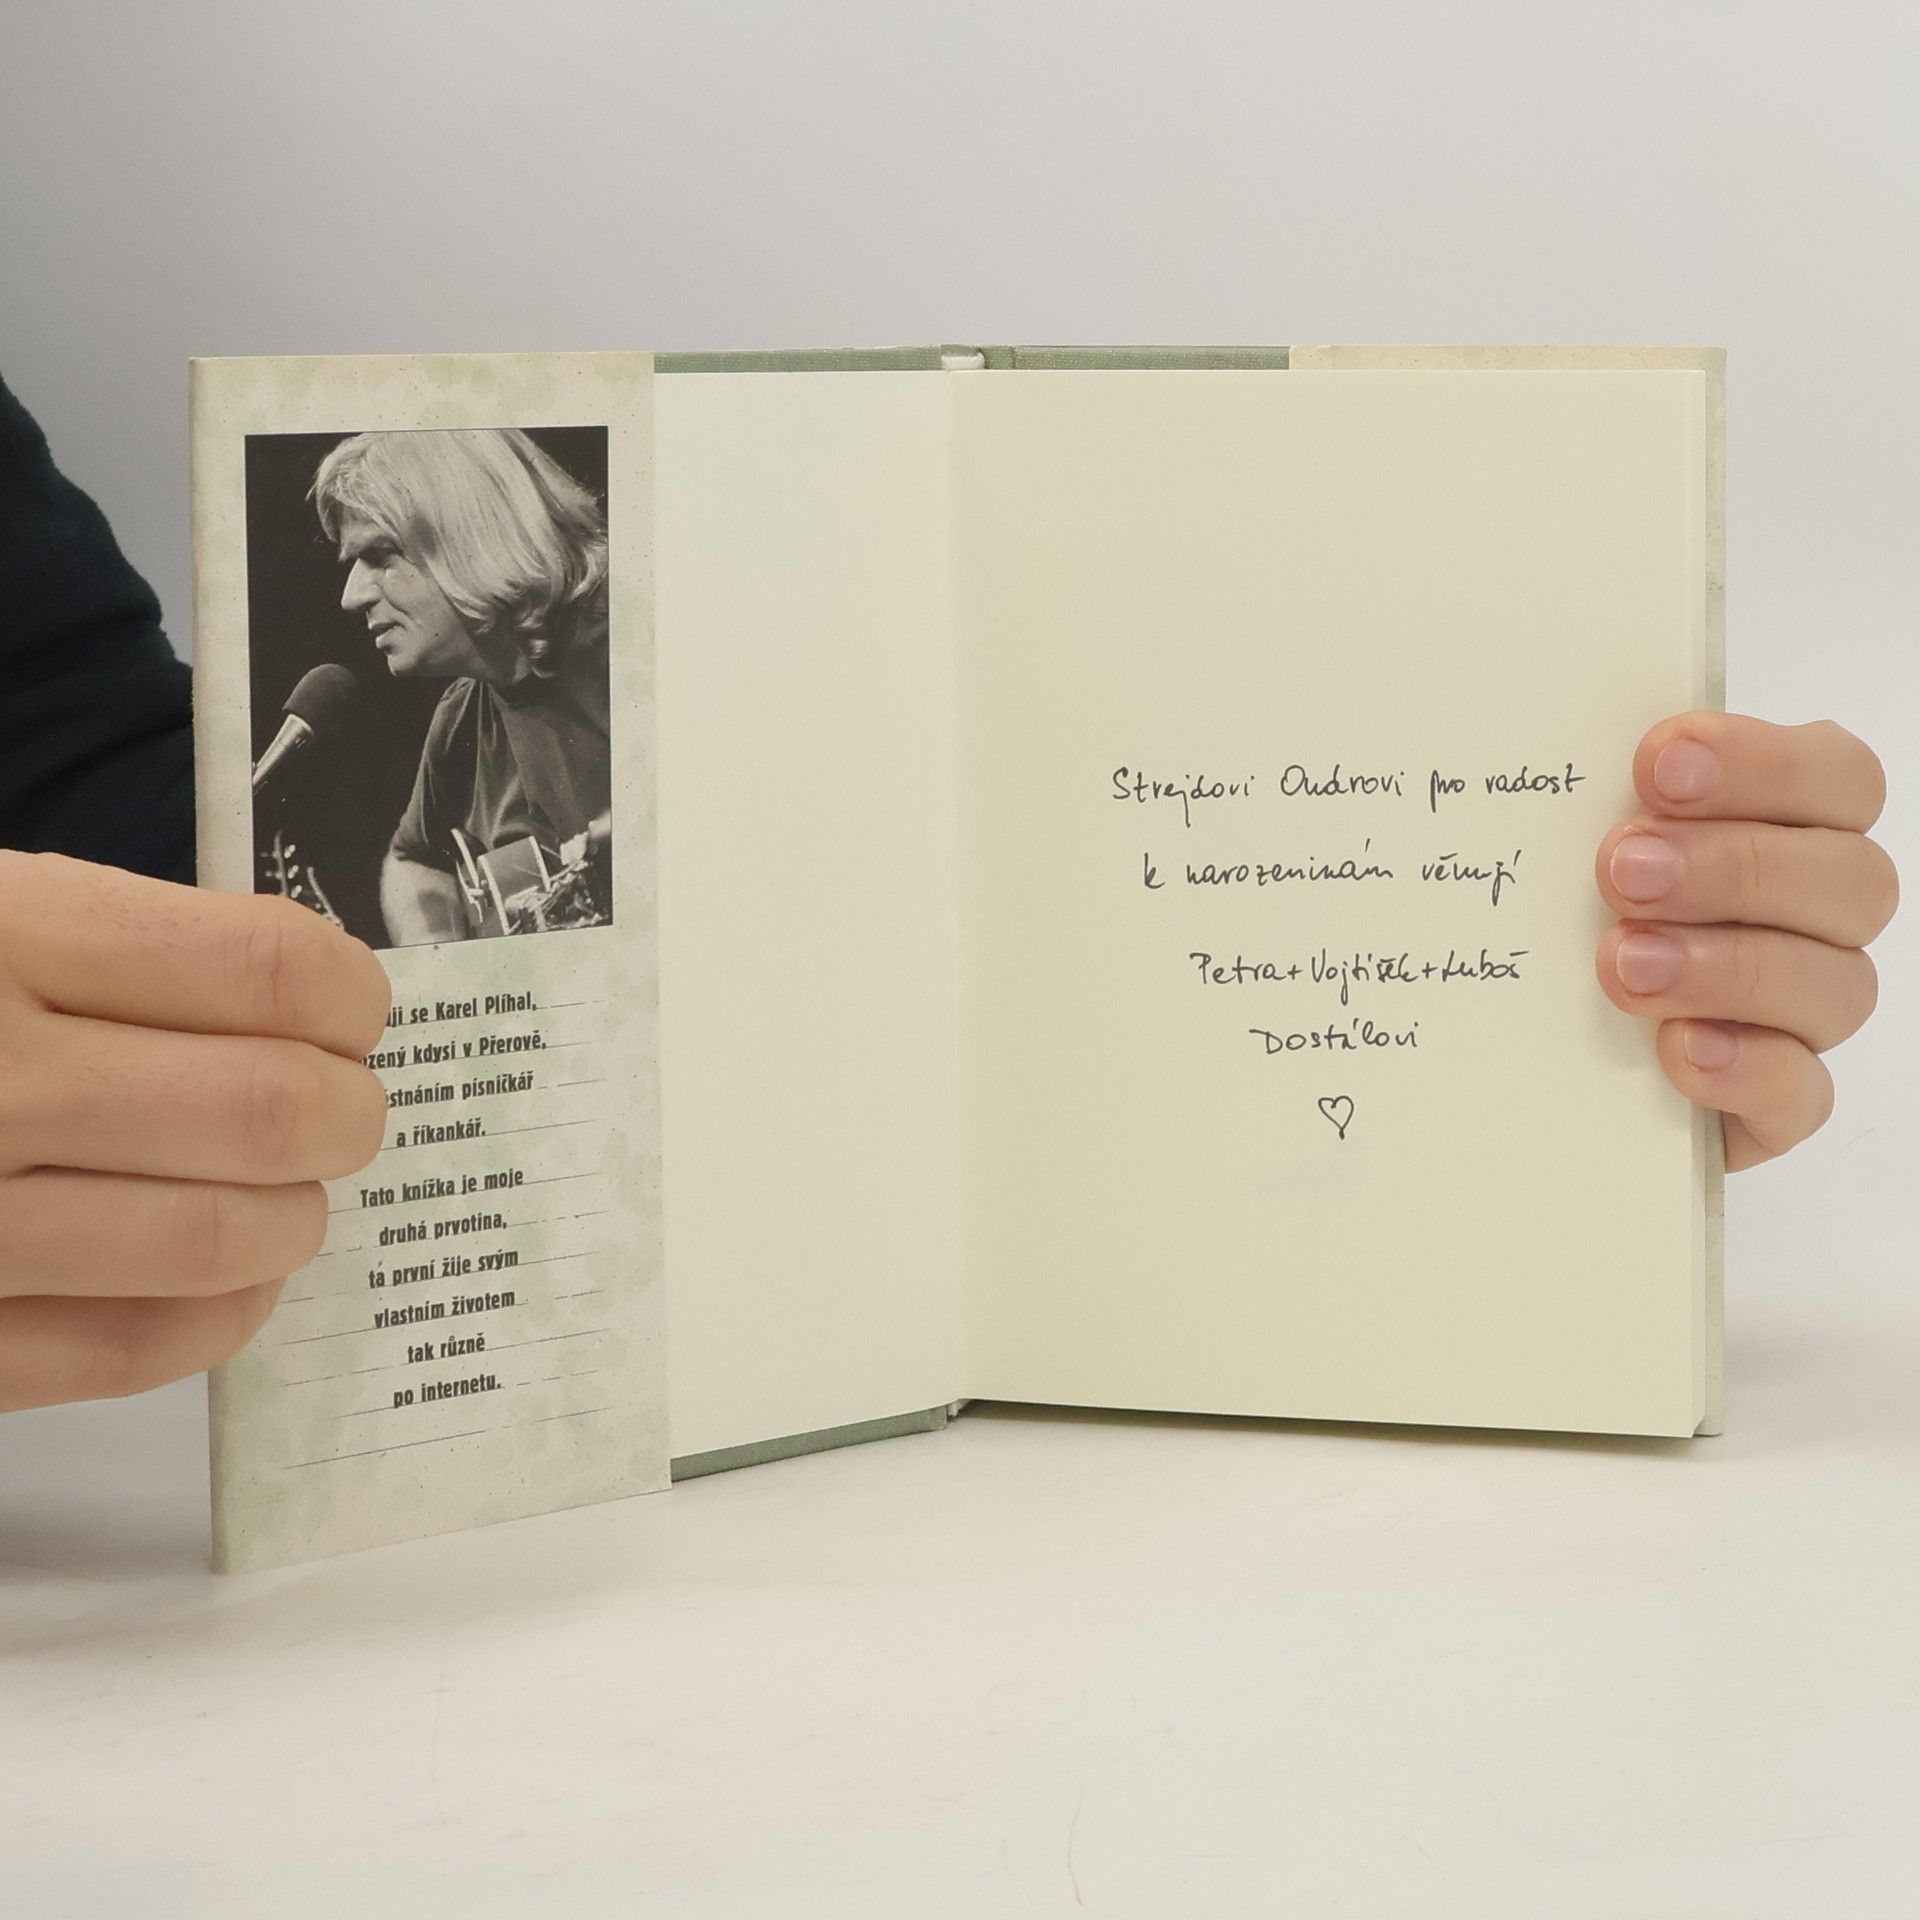 ji se Karel Plíhal,
zený kdysi v Přerově,
stnáním písničkář
a říkankář.
Tato knížka je moje
druhá prvotina,
ta první žije svým
vlastním životem
tak různě
po internetu.
Strejdovi Ondrovi pro radost
k narozeninám věnují
Petra+Vojtíšek+Luboš
Dostálovi